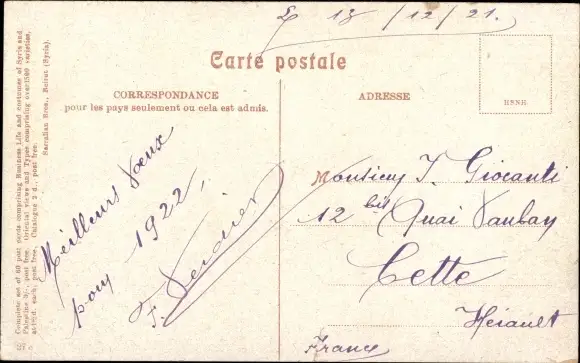 E 13/12/21.
Carte postale
CORRESPONDANCE
pour les pays seulement ou cela est admis.
ADRESSE
Meilleurs Vœux
pour 1922,
F. Verdier
Monsieur J. Giocanti
12 bis Quai Vauban
Cette
Hérault
France
Complete set of 60 post cards comprising Business Life and costumes of Syria and
Palestine
post free. Oriental views and Types comprising over 1500 varieties,
each, post free. Catalogue 2 d., post free.
Sarrafian Bros., Beirut (Syria).